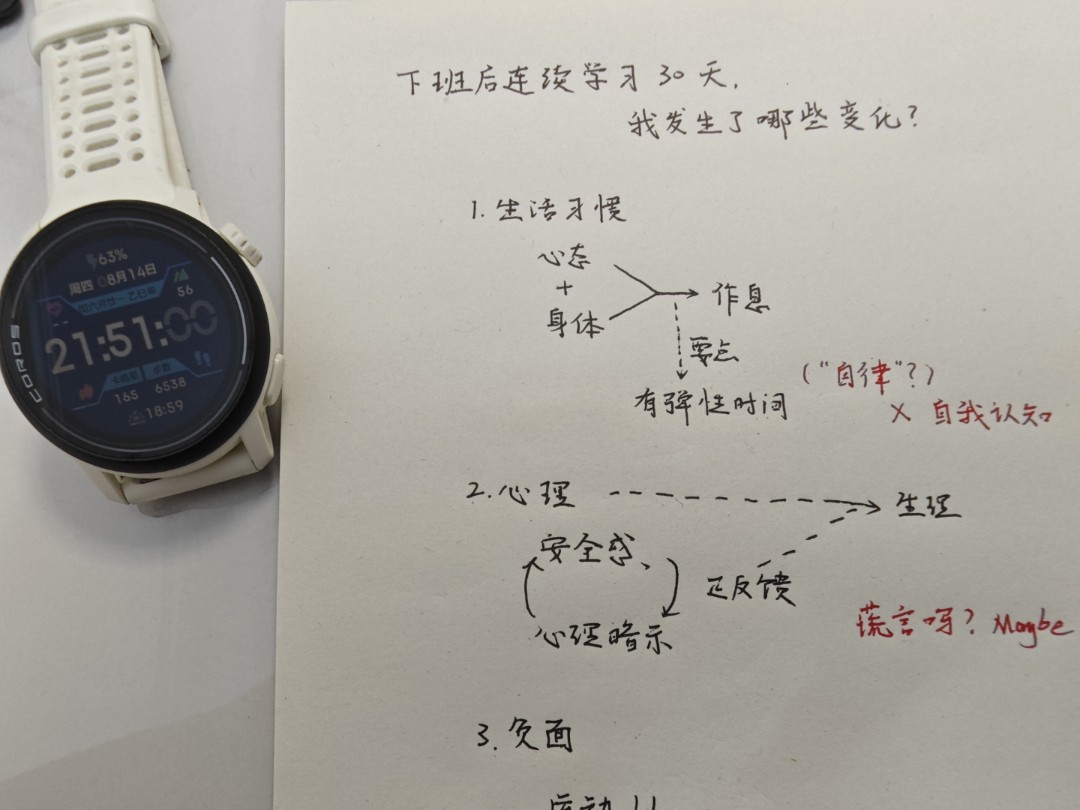 63%
周四 08月14日
56
21:51:00
165 6538
18:59
COROS
下班后连续学习30天,
我发生了哪些变化?
1. 生活习惯
心态
+
身体
作息
要点
有弹性时间
("自律"?)
× 自我认知
2. 心理
生理
安全感、
正反馈
心理暗示
谎言吗? Maybe
3. 负面